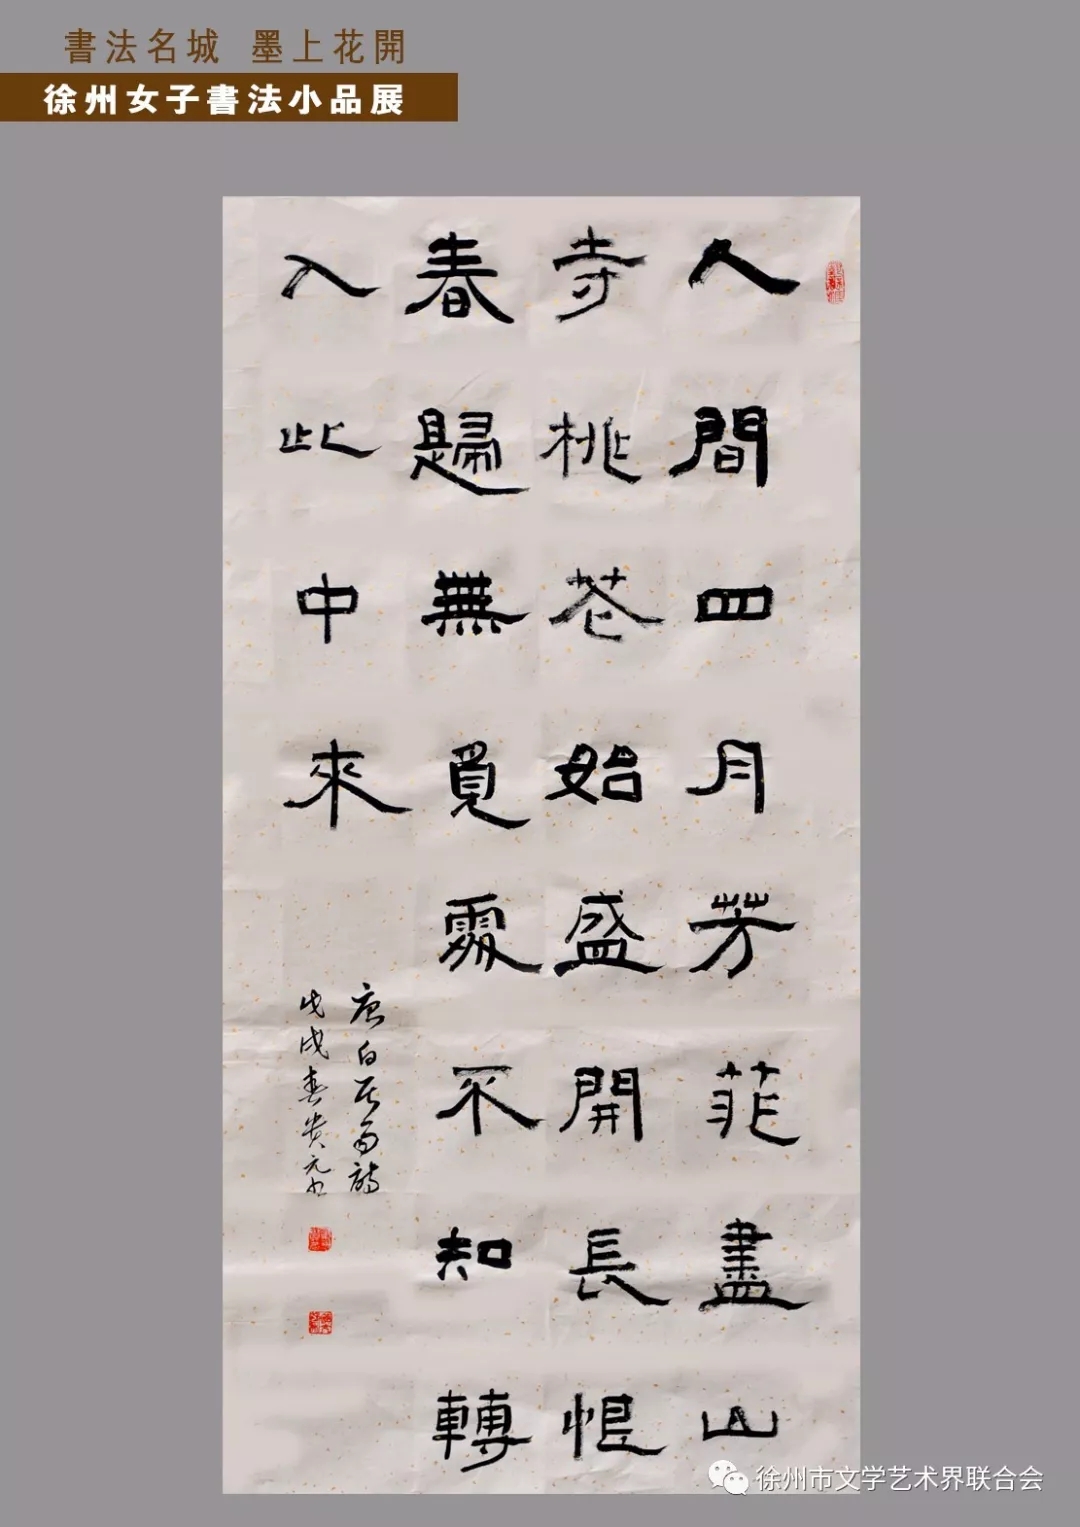 書法名城 墨上花開
徐州女子書法小品展
人間四月芳菲盡山
寺桃花始盛開長恨
春歸無覓處不知轉
入此中來
唐白居易詩
戊戌春黄元书
徐州市文学艺术界联合会